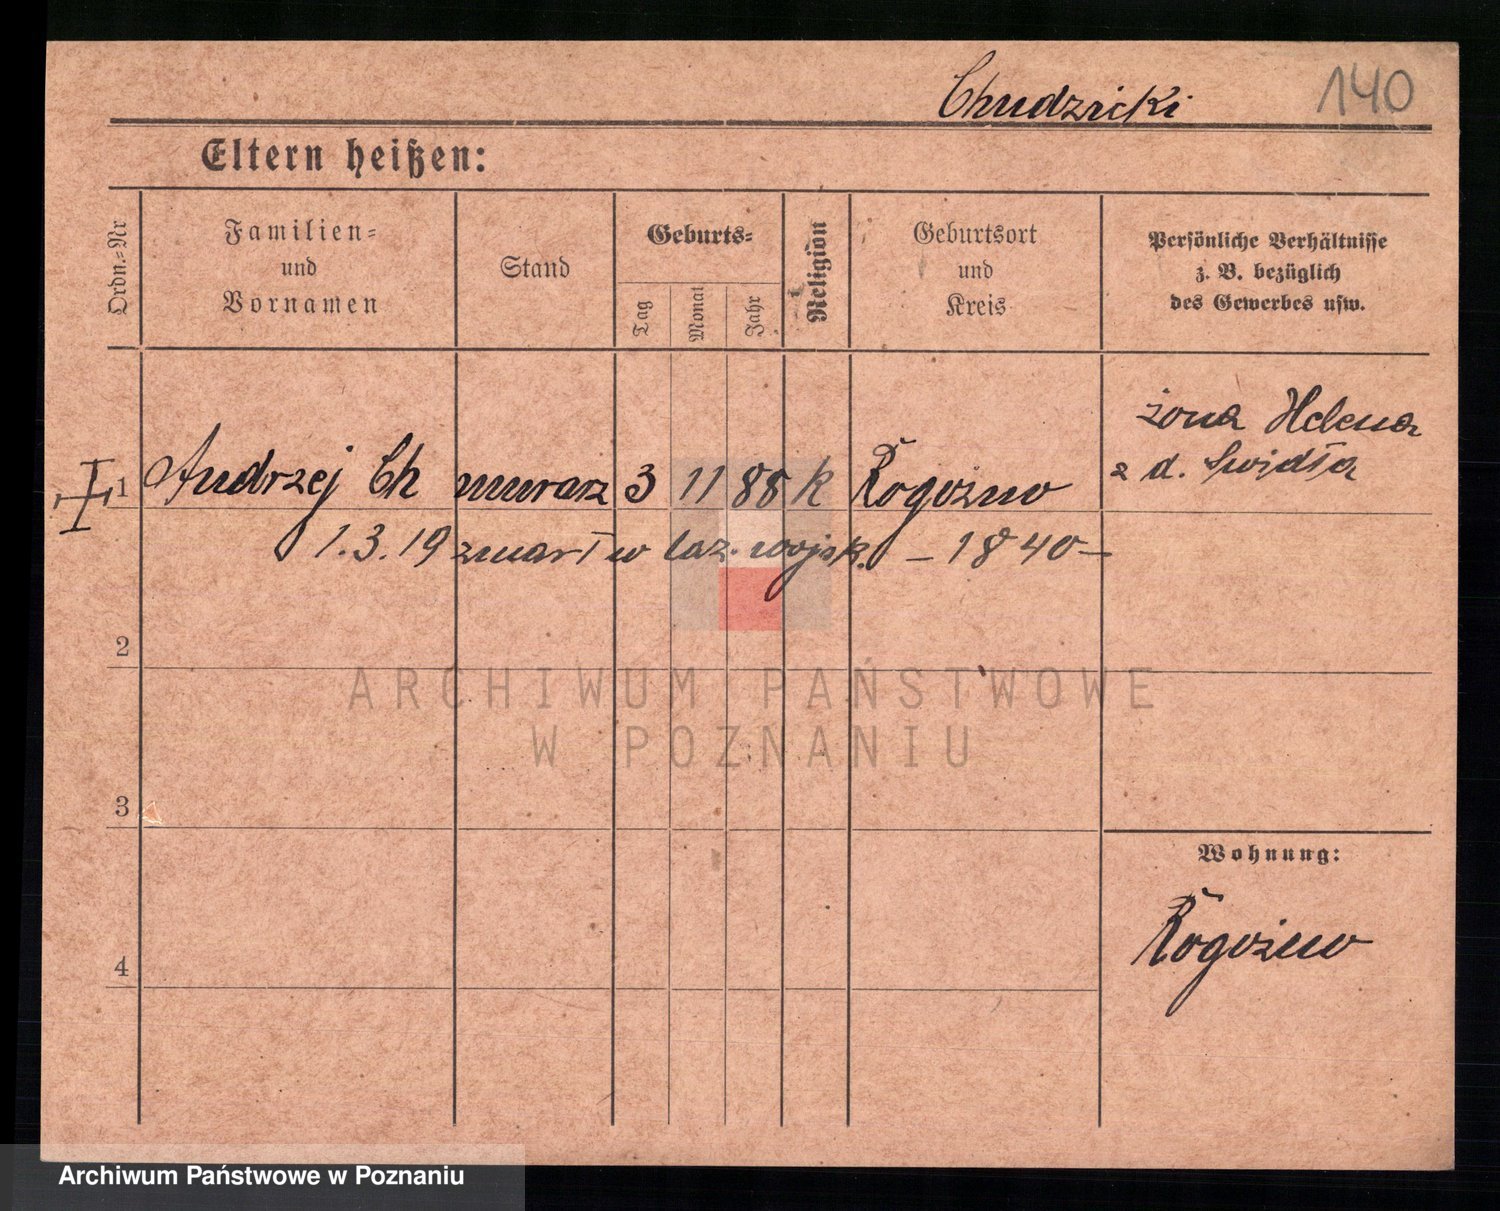 Chudzicki 140
Eltern heißen:
Ordn.=Nr
Familien=
und
Vornamen
Stand
Geburts=
Tag
Monat
Jahr
Religion
Geburtsort
und
Kreis
Persönliche Verhältnisse
z. B. bezüglich
des Gewerbes usw.
żona Helena
z d.
1 Andrzej Ch murarz 3 11 88 k Rogoźno
1.3.19 zmarł w laz. wojsk. – 1840 –
2
3
4
Wohnung:
Rogoźno
ARCHIWUM PAŃSTWOWE
W POZNANIU
Archiwum Państwowe w Poznaniu